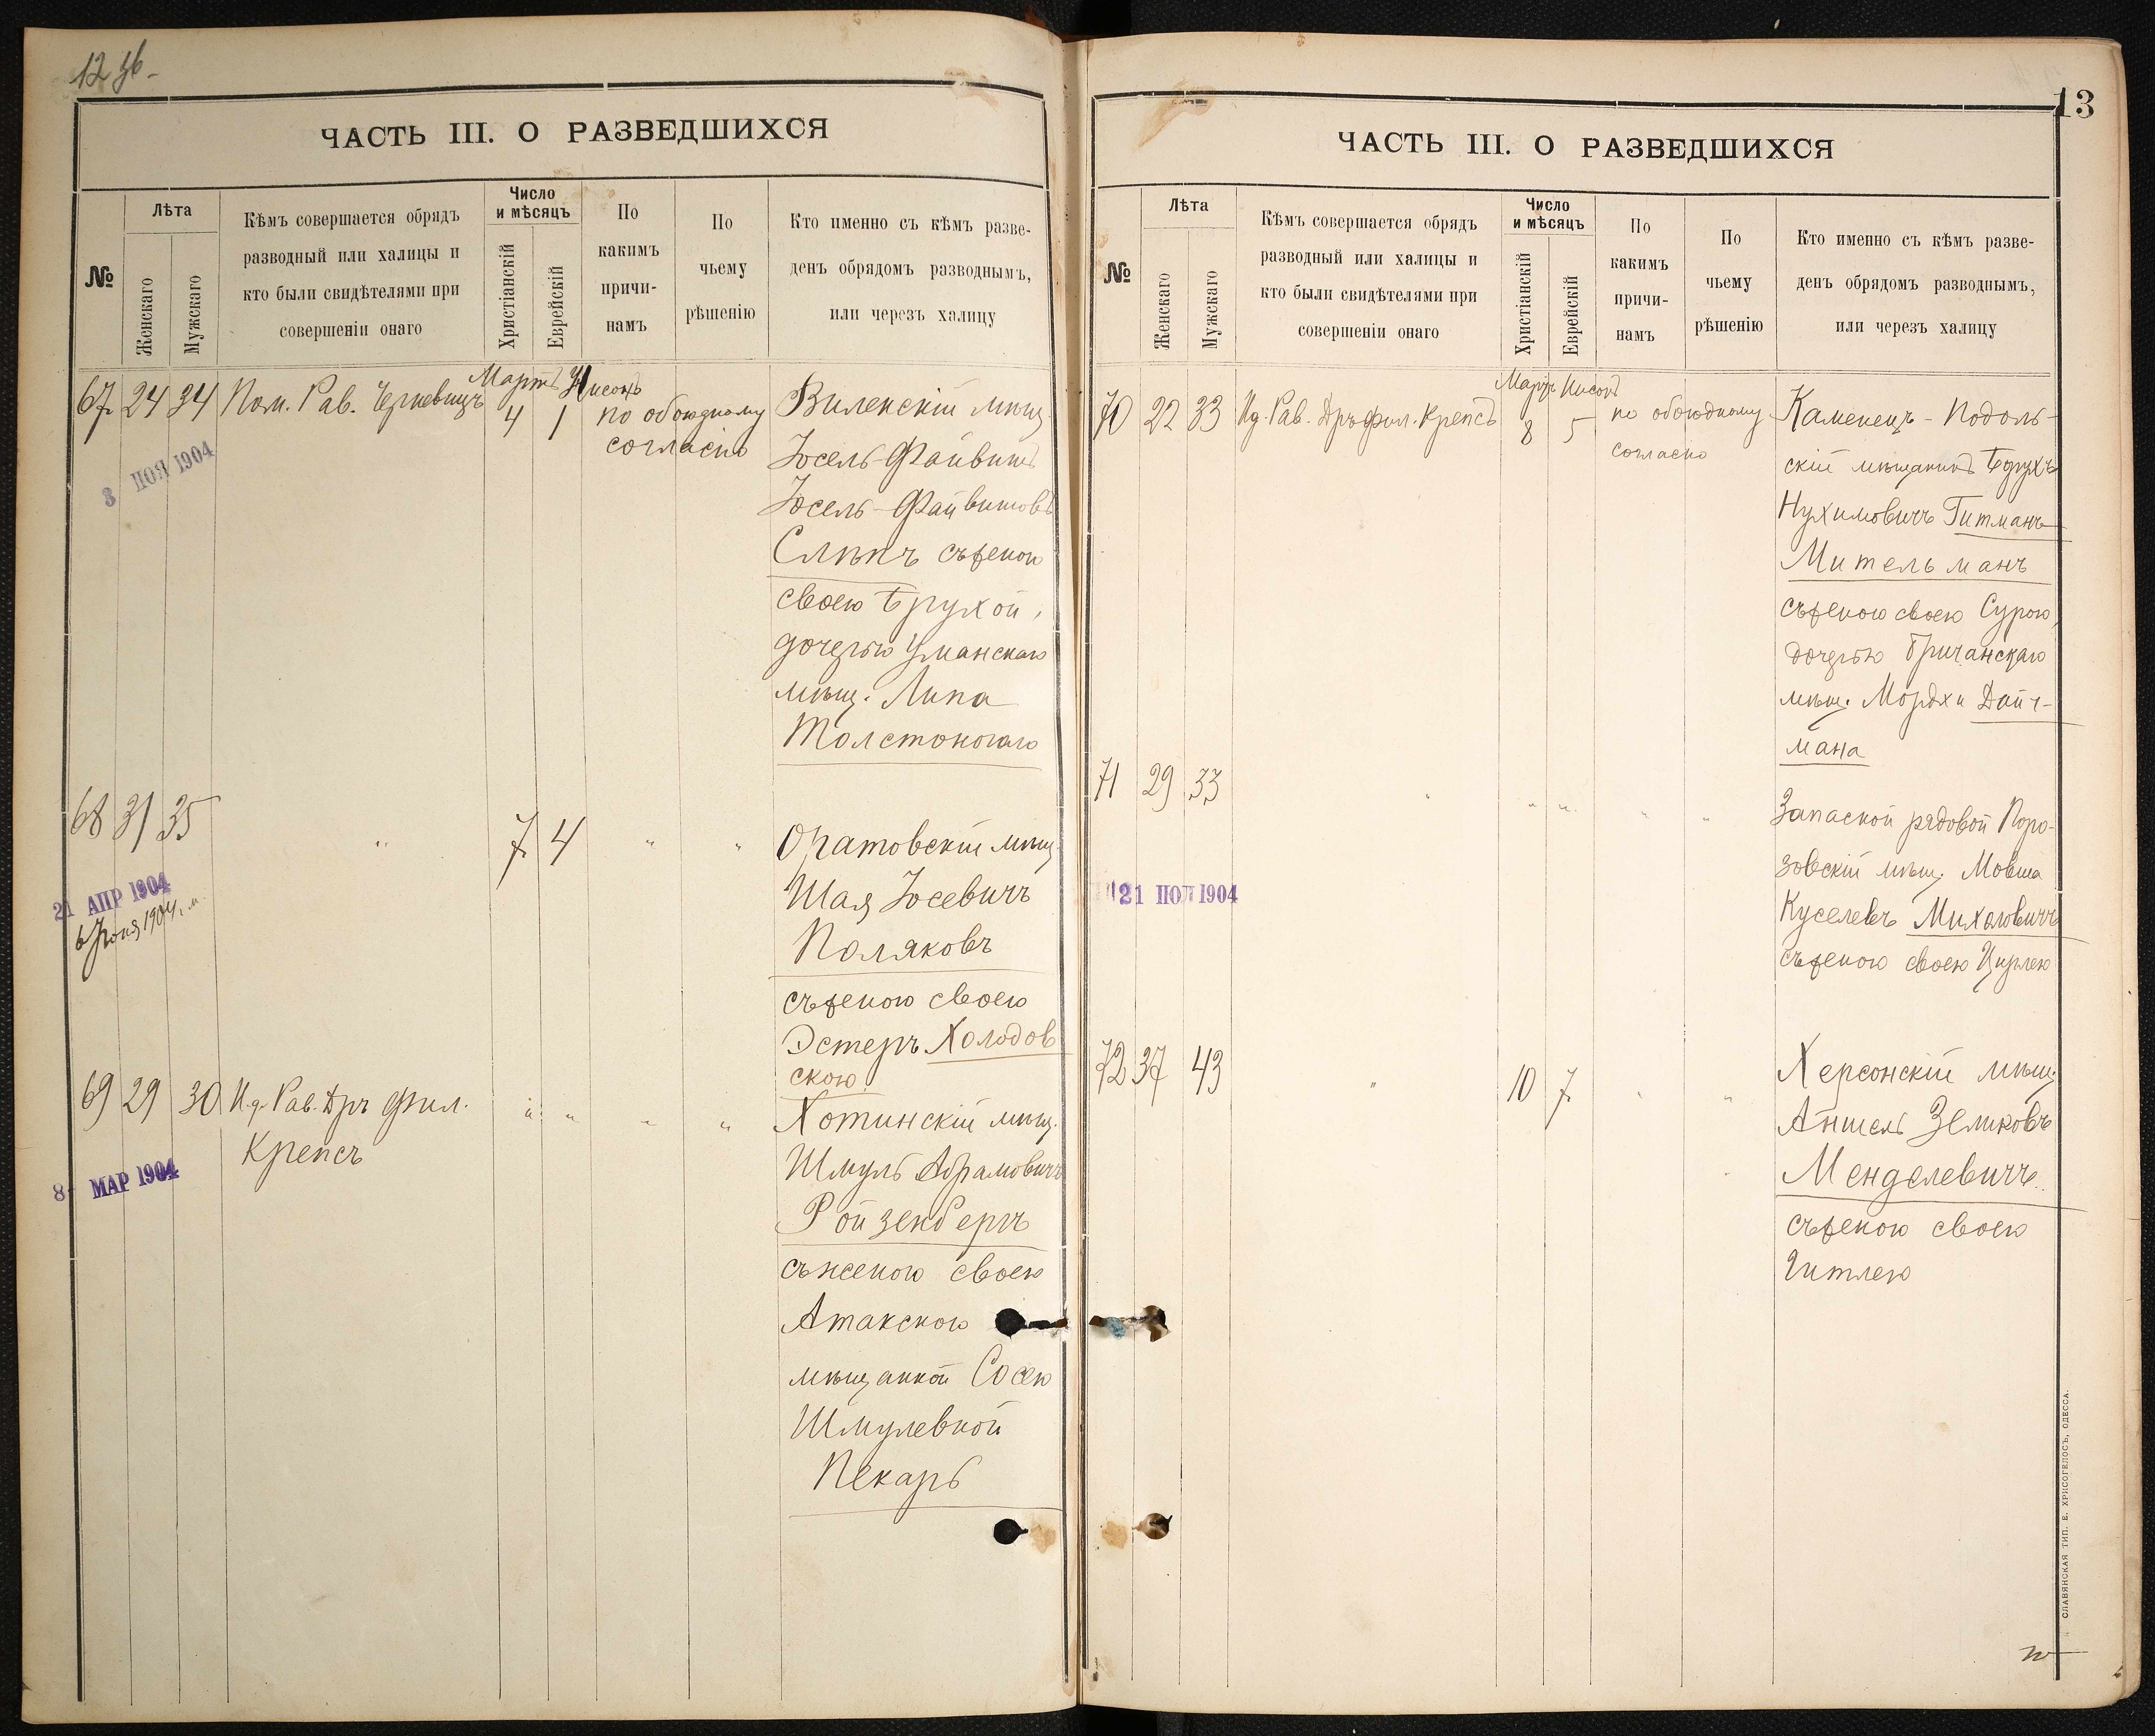 12 
ЧАСТЬ III. О РАЗВЕДШИХСЯ
№
Лѣта
Женскаго
Мужскаго
Кѣмъ совершается обрядъ
разводный или халицы и
кто были свидѣтелями при
совершеніи онаго
Число
и мѣсяцъ
Христіанскій
Еврейскій
По
какимъ
причи-
намъ
По
чьему
рѣшенію
Кто именно съ кѣмъ разве-
денъ обрядомъ разводнымъ,
или черезъ халицу
67 24 34 Пом. Рав. Черневицъ
Мартъ Нисонъ
4 1
по обоюдному
согласію
Виленскій мѣщ.
Іосель-Файвишъ
Іосель-Файвишовъ
Слѣпъ съ женою
своею Брухой,
дочерью Уманскаго
мѣщ. Липа
Толстоногаго
3 НОЯ 1904
68 31 35 " 7 4 " "
Оратовскій мѣщ.
Шая Іосевичъ
Поляковъ
съ женою своею
Эстеръ Холодов
скою
21 АПР 1904
6 Іюня 1904.
69 29 30 И.д. Рав. Дръ Фил.
Крепсъ
" " " "
Хотинскій мѣщ.
Шмуль Абрамовичъ
Ройзенбергъ
съ женою своею
Атакскою
мѣщанкой Сосею
Шмулевной
Пекарь
8 МАР 1904
13
ЧАСТЬ III. О РАЗВЕДШИХСЯ
№
Лѣта
Женскаго
Мужскаго
Кѣмъ совершается обрядъ
разводный или халицы и
кто были свидѣтелями при
совершеніи онаго
Число
и мѣсяцъ
Христіанскій
Еврейскій
По
какимъ
причи-
намъ
По
чьему
рѣшенію
Кто именно съ кѣмъ разве-
денъ обрядомъ разводнымъ,
или черезъ халицу
70 22 33 Ид. Рав. Дръ Фил. Крепсъ
Мартъ Нисонъ
8 5
по обоюдному
согласію
Каменецъ-Подоль-
скій мѣщанинъ Борухъ
Нухимовичъ Гитманъ
Мительманъ
съ женою своею Сурою,
дочерью Бричанскаго
мѣщ. Мордхи Дайч-
мана
71 29 33 " " " " "
Запаской рядовой Поро-
зовскій мѣщ. Мовша
Куселевъ Михаловичъ
съ женою своею Цирлею
21 НОЯ 1904
72 37 43 " 10 7 " "
Херсонскій мѣщ.
Аншель Зеликовъ
Менделевичъ
съ женою своею
Гитлею
СЛАВЯНСКАЯ ТИП. Е. ХРИСОГЕЛОСЪ, ОДЕССА.